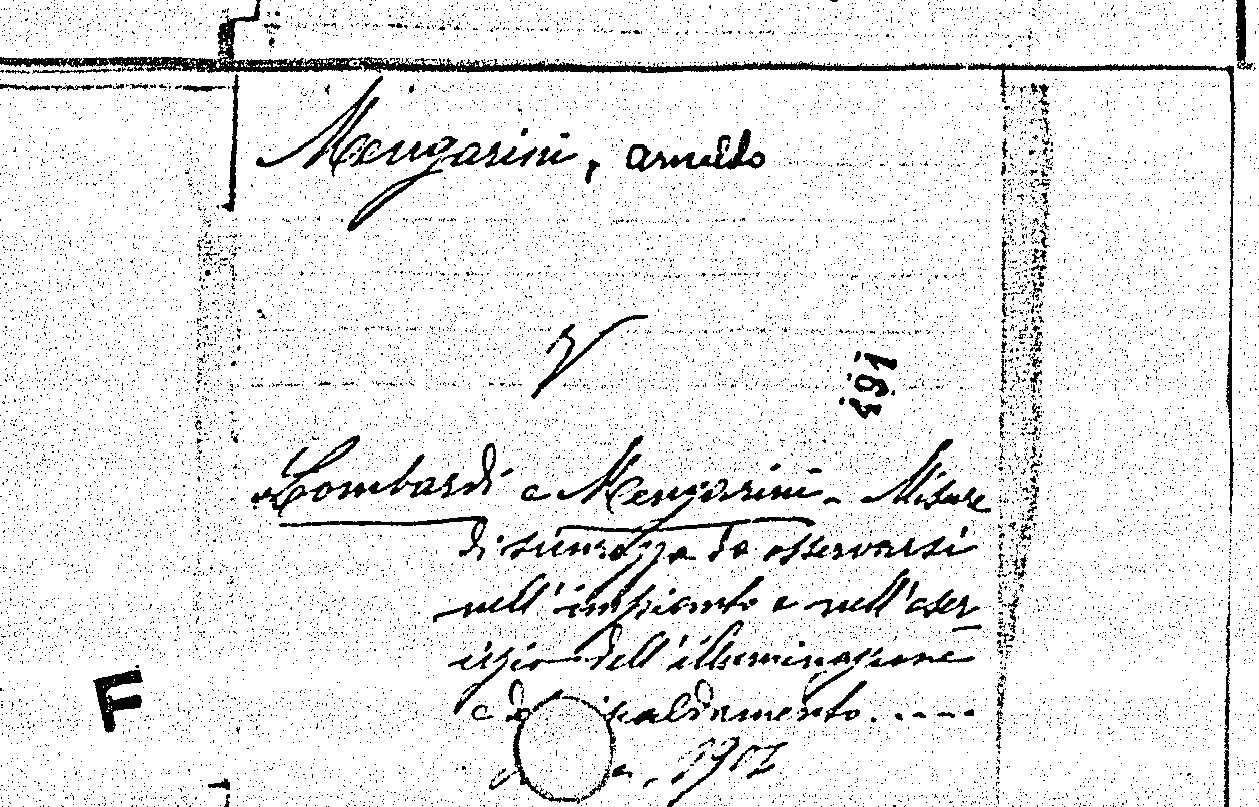 Mengarini, Arnaldo
V
491
Lombardi e Mengarini - Misure
di sicurezza da osservarsi
nell'impianto e nell'eser-
cizio dell'illuminazione
e d scaldamento. ....
a, 1907
F